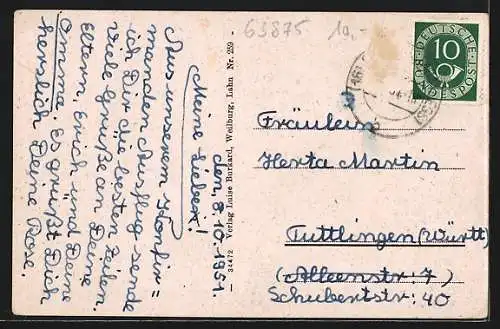 63875 10,-
den, 7. 10. 1951.
Meine Lieben!
Aus unserem Konfir=
manden Ausflug sende
ich Dir die besten Zeilen.
Viele Grüße an Deine
Eltern, Erich und Deine
Omma. Es grüßt Dich
herzlich Deine Rose.
— 34472 Verlag Luise Burkard, Weilburg, Lahn Nr. 259 —
DEUTSCHE
BUNDESPOST
10
Fräulein
Herta Martin
Tuttlingen (Württ)
(Alleenstr: 7)
Schubertstr: 40